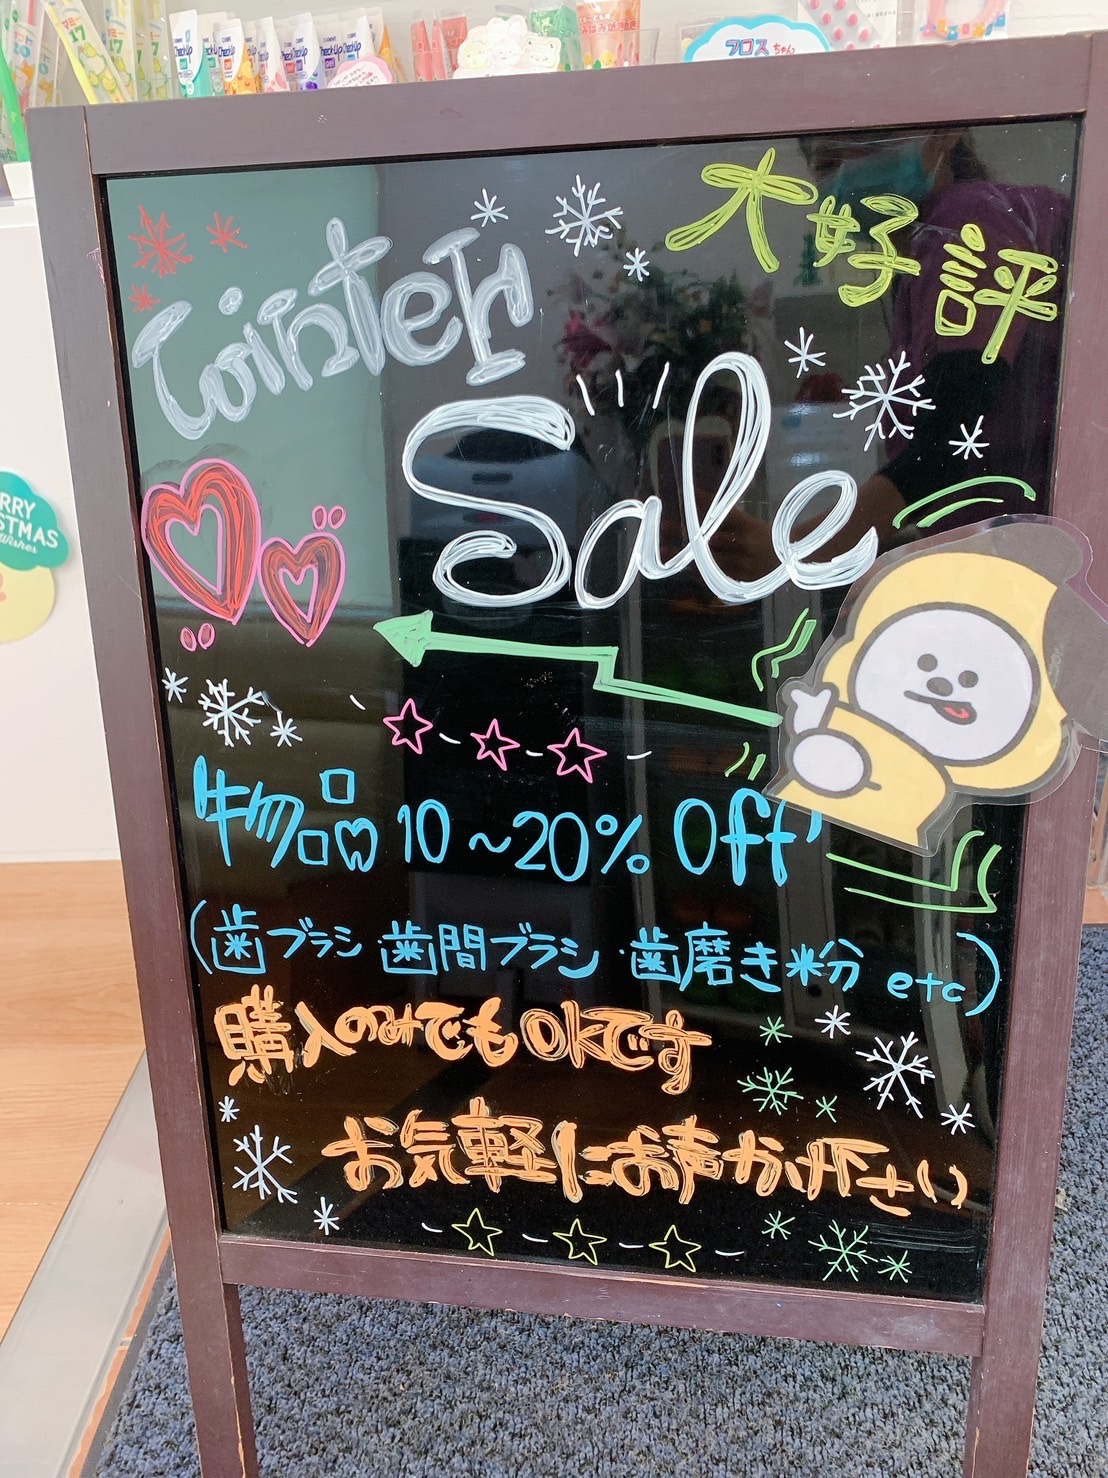 フロスちゃん
Check-Up
大好評
Winter
Sale
RRY
STMAS
Wishes
物品 10〜20% Off
(歯ブラシ 歯間ブラシ 歯磨き粉 etc)
購入のみでもOKです
お気軽にお声かけ下さい